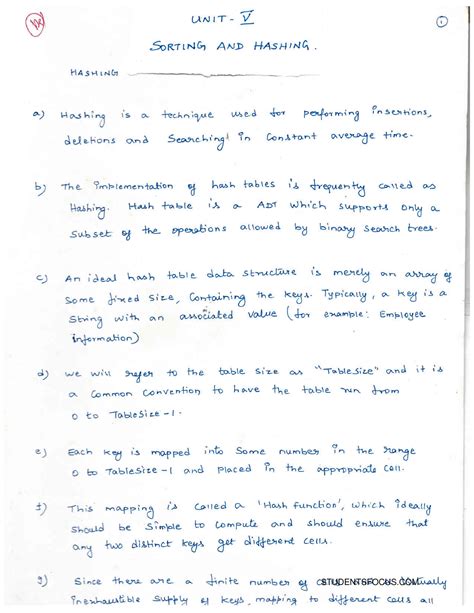 UNIT - V
1
SORTING AND HASHING.
HASHING
a) Hashing is a technique used for performing insertions,
deletions and Searching in Constant average time.
b) The implementation of hash tables is frequently called as
Hashing. Hash table is a ADT which supports only a
Subset of the operations allowed by binary search trees.
c) An ideal hash table data structure is merely an array of
Some fixed Size, Containing the keys. Typically, a key is a
String with an associated value (for example: Employee
information)
d) we will refer to the table size as "Tablesize" and it is
a Common Convention to have the table run from
0 to TableSize-1.
e) Each key is mapped into Some number in the range
0 to TableSize-1 and placed in the appropriate Cell.
f) This mapping is Called a 'Hash function', which ideally
Should be Simple to Compute and should ensure that
any two distinct keys get different cells.
g) Since there are a finite number of STUDENTSFOCUS.COM
inexhaustible Supply of keys, mapping to different cells all